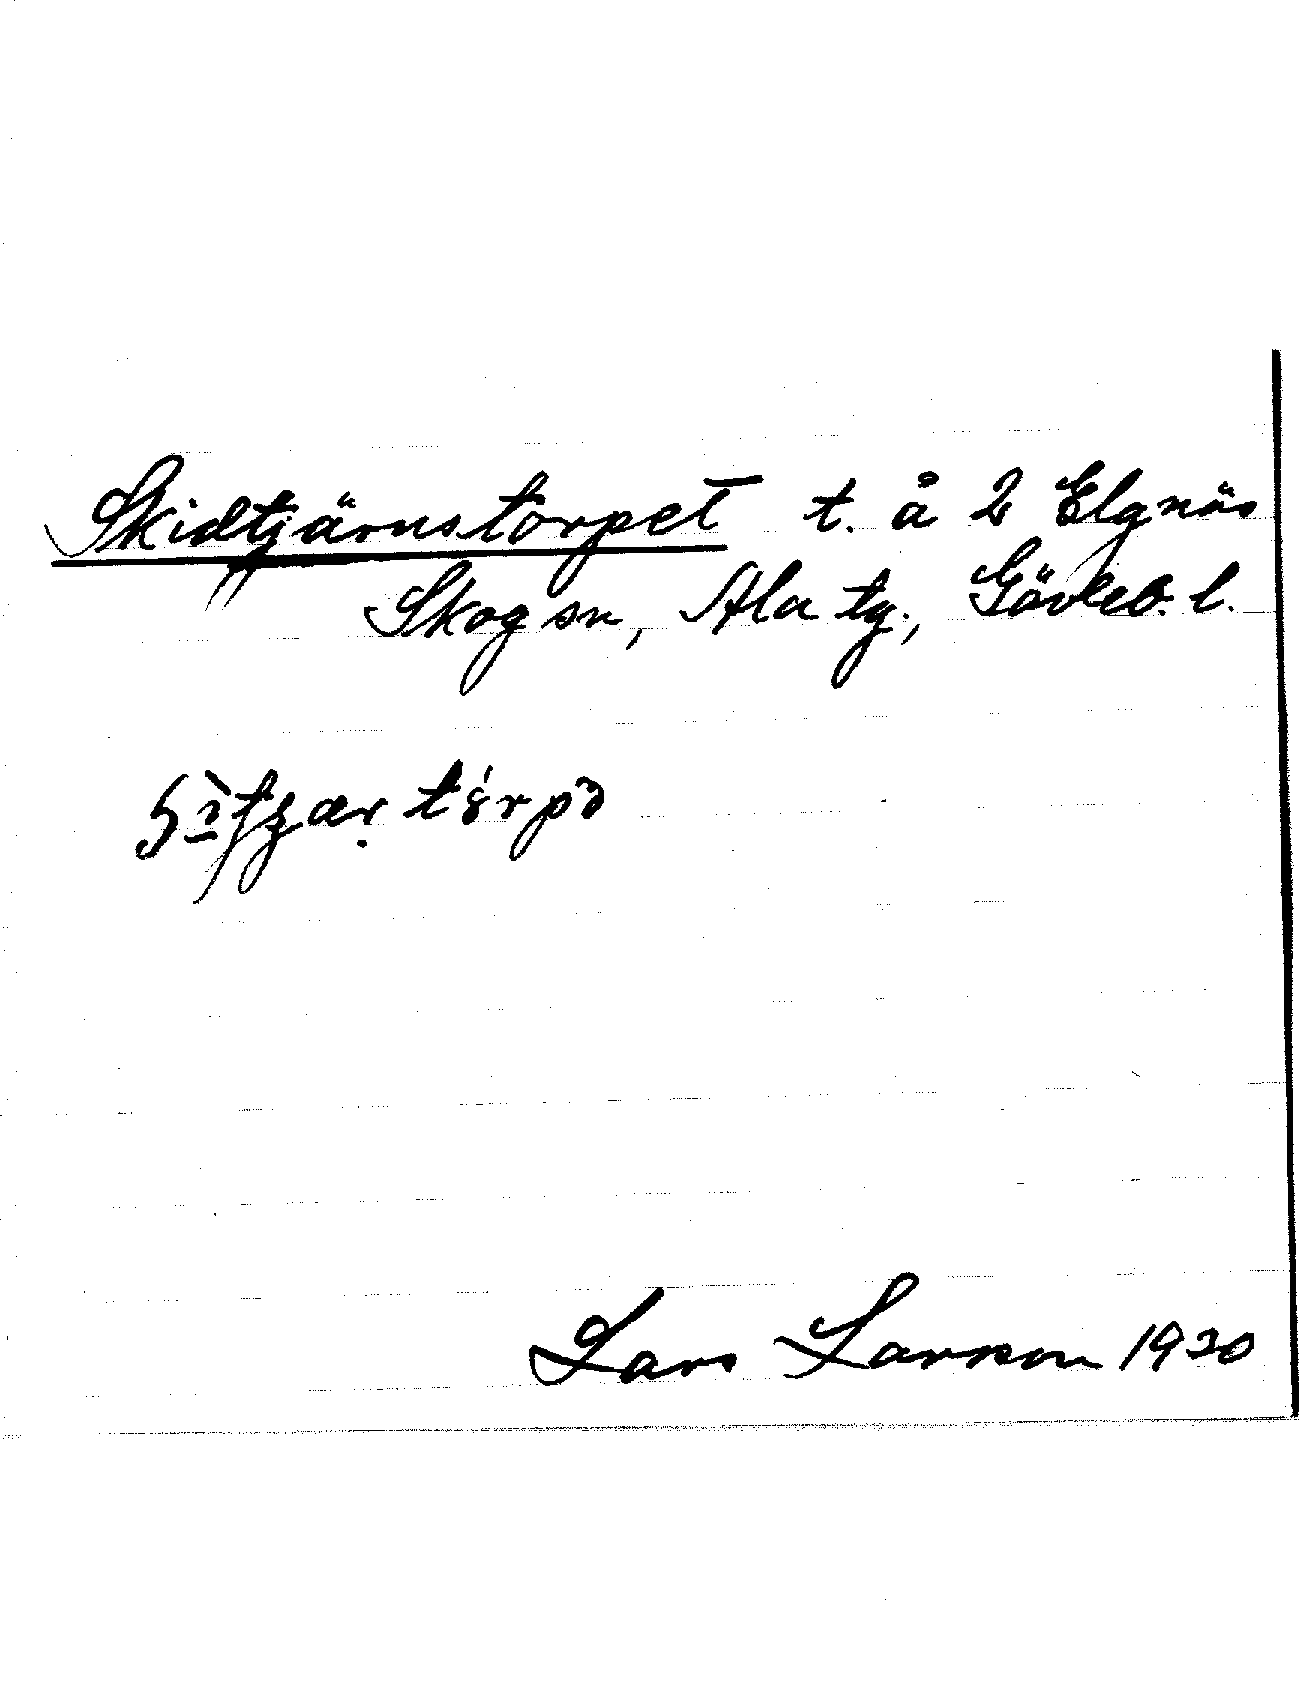 Skidtjärnstorpet t. å 2 Elgnäs
Skog sn, Ala tg., Gävleb. l.
Lars Larsson 1930